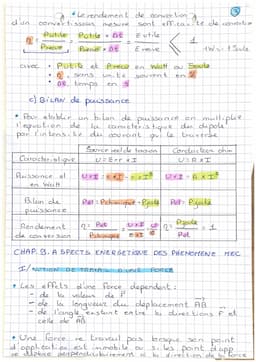 Le rendement de convertion η
d'un convertisseur mesure sont efficacité de convertio
η = Putile / Preçue = Putile × Δt / Preçue × Δt = E utile / E reçue < 1
1W = 1 Joule
avec • Putile et Preçue en Watt ou Joule
• η, sans unité souvent en %
• Δt, temps en s
c) Bilan de puissance
• Pour établir un bilan de puissance on multiplie
l'équation de la caractéristique du dipole
par l'intensité du courant qui le traverse
Source réel de tension Conducteur ohm
Caractéristique U = E - r × I U = R × I
Puissance él en Watt U×I = E×I - r×I² U×I = R × I²
Bilan de puissance Pel = Pchimique - Pjoule Pel = Pjoule
Rendement de conversion η = Pel / Pchimique = U×I / E×I η = Pjoule / Pel = 1
CHAP. 9. ASPECTS ENERGETIQUE DES PHENOMENE MEC
I/ NOTION DE TRAVAIL D'UNE FORCE
• Les effets d'une Force dépendant :
- de la valeur de F
- de la longueur du déplacement AB
- de l'angle existant entre la directions F et
celle de AB
• Une force ne travail pas lorsque son point
d'application est immobile ou si les point d'app
se déplace perpendiculairement à la direction de la force